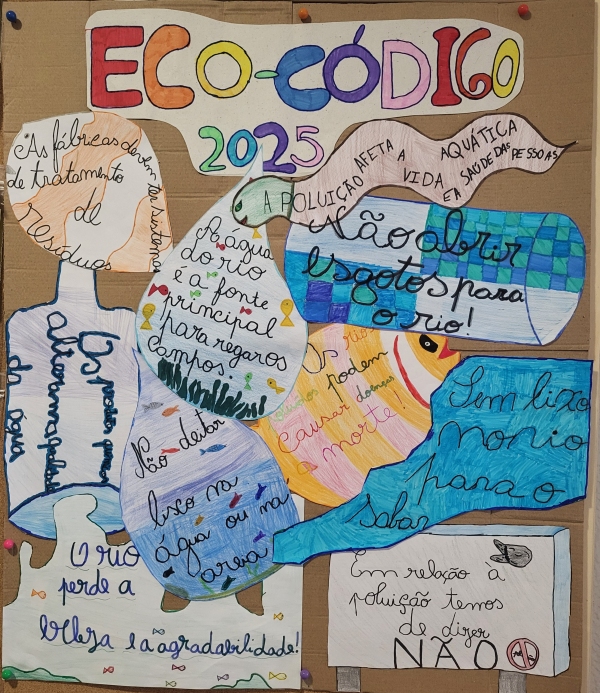 ECO-CÓDIGO
2025
"As fábricas devem ter sistemas
de tratamento
de
resíduos
A POLUIÇÃO AFETA A VIDA AQUÁTICA
E A SAÚDE DAS PESSOAS
A água
do rio
é a fonte
principal
para regar os
campos
Não abrir
esgotos para
o rio!
Os rios
poluídos podem
causar doenças
a morte!
Os
alteram a
da água
Não deitar
lixo na
água ou na
areia
Sem lixo
no rio
para o
sabar
O rio
perde a
beleza e a agradabilidade!
Em relação à
poluição temos
de dizer
NÃO